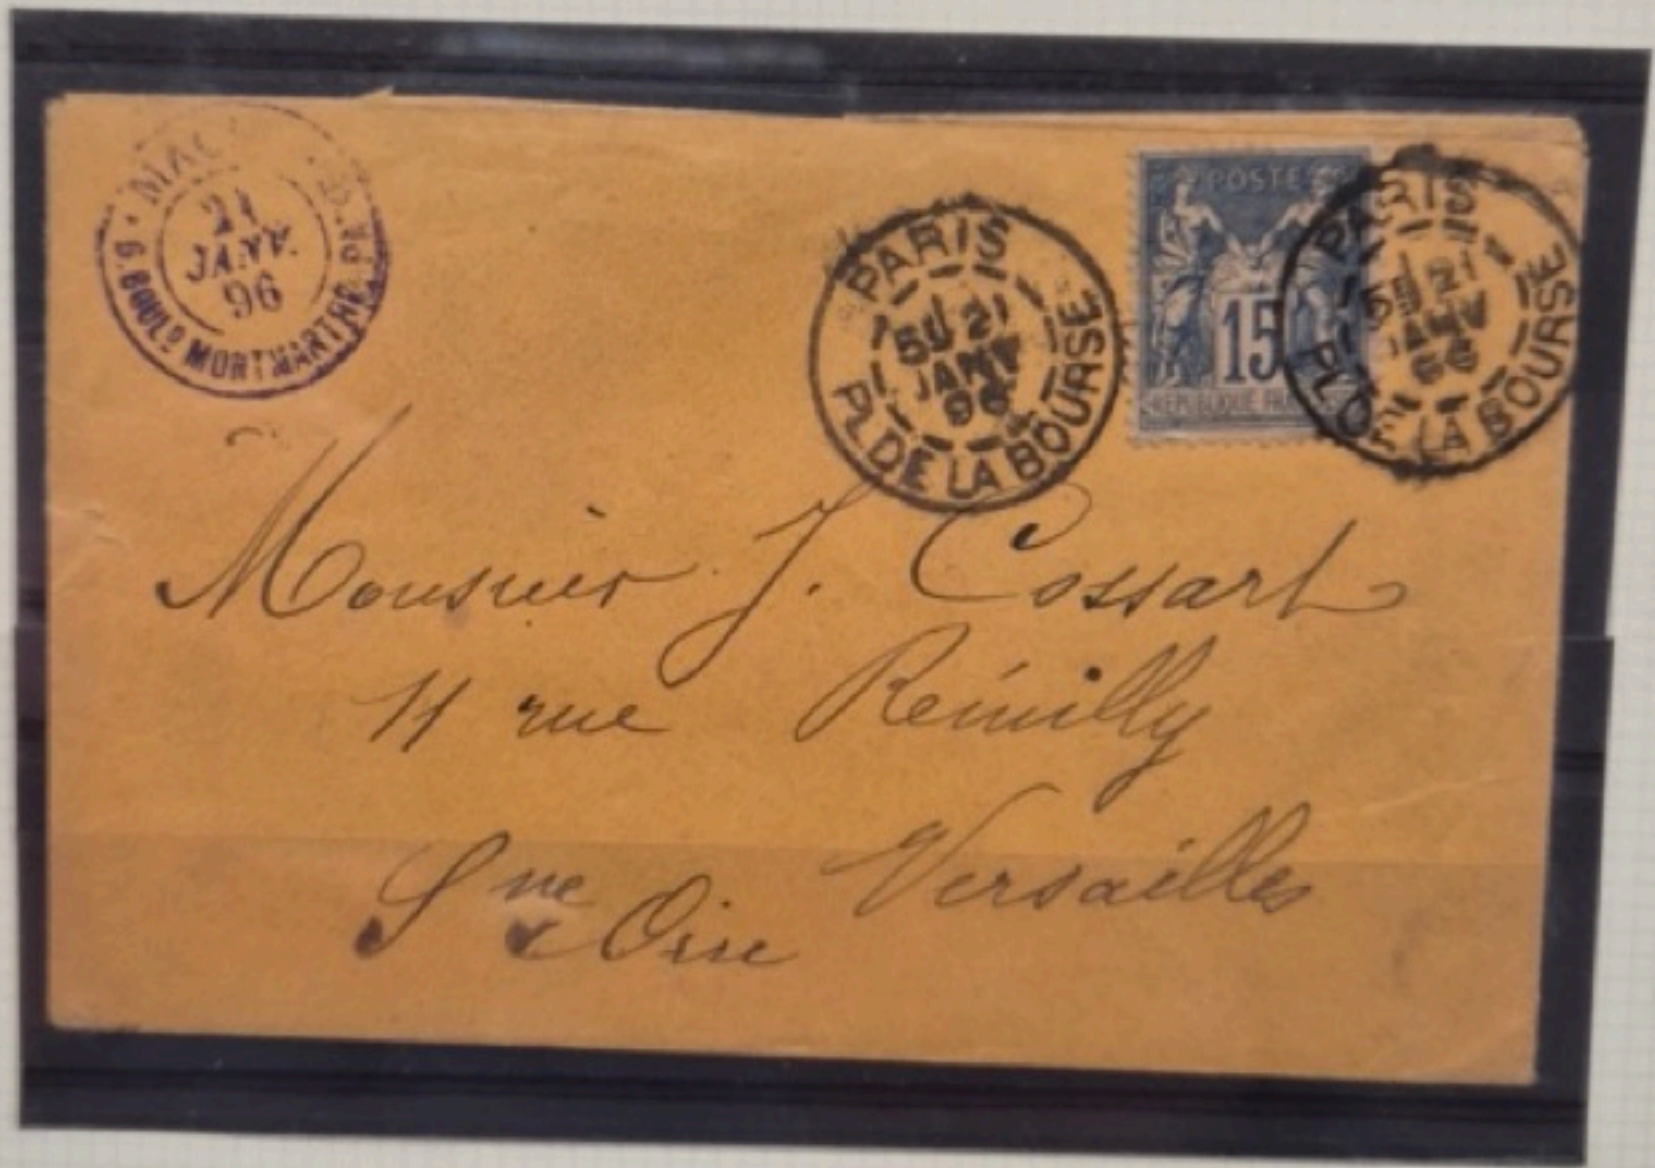 21
JANV.
96
6. BOUL.D MONTMARTRE.
PARIS
5E 21
JANV
96
PL. DE LA BOURSE
POSTES
15
REPUBLIQUE
PARIS
5E 21
JANV
96
PL. DE LA BOURSE
Monsieur J. Cossart
11 rue Rémilly
Versailles
Sne & Oise